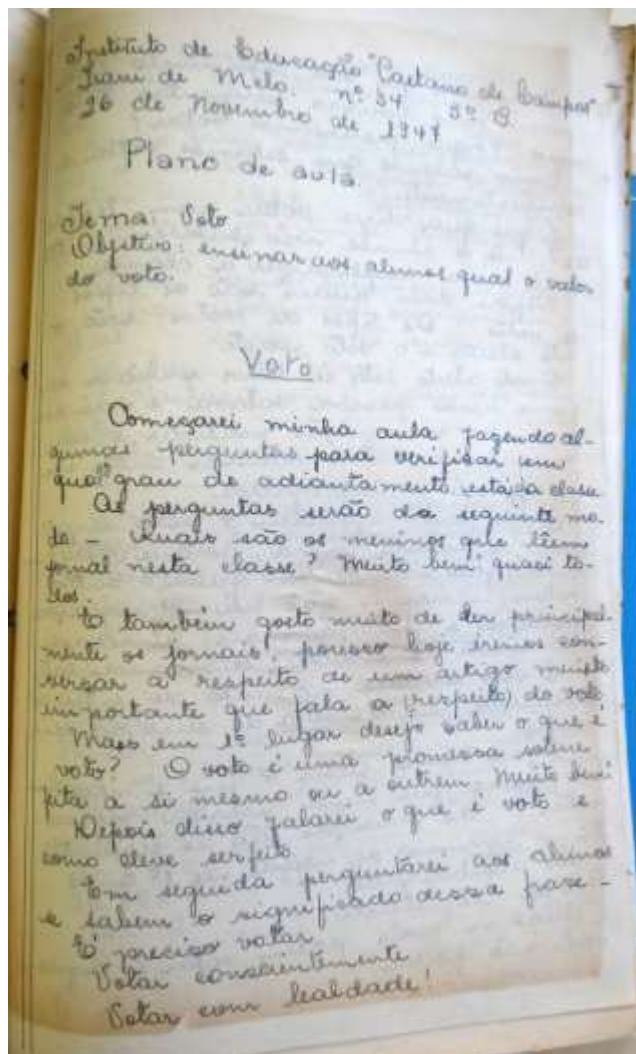 Instituto de Educação "Caetano de Campos"
Irani de Melo. nº 34 5º B.
26 de Novembro de 1947
Plano de aula.
Tema: Voto
Objetivo: ensinar aos alunos qual o valor
do voto.
Voto
Começarei minha aula fazendo al-
gumas perguntas para verificar em
qual grau de adiantamento está a classe
As perguntas serão da seguinte mo-
do – Quais são os meninos que lêem
jornal nesta classe? Muito bem! quasi to-
dos.
E também gosto muito de ler principal-
mente os jornais! porisso hoje iremos con-
versar a respeito de um artigo muito
importante que fala a (respeito) do voto
Mass em 1º lugar desejo saber o que é
voto? O voto é uma promessa solene
feita a si mesmo ou a outrem. Muito bem
Depois disso falarei o que é voto e
como deve ser feito
Em seguida perguntarei aos alunos
se sabem o significado dessa frase –
É preciso votar
Votar conscientemente
Votar com lealdade!